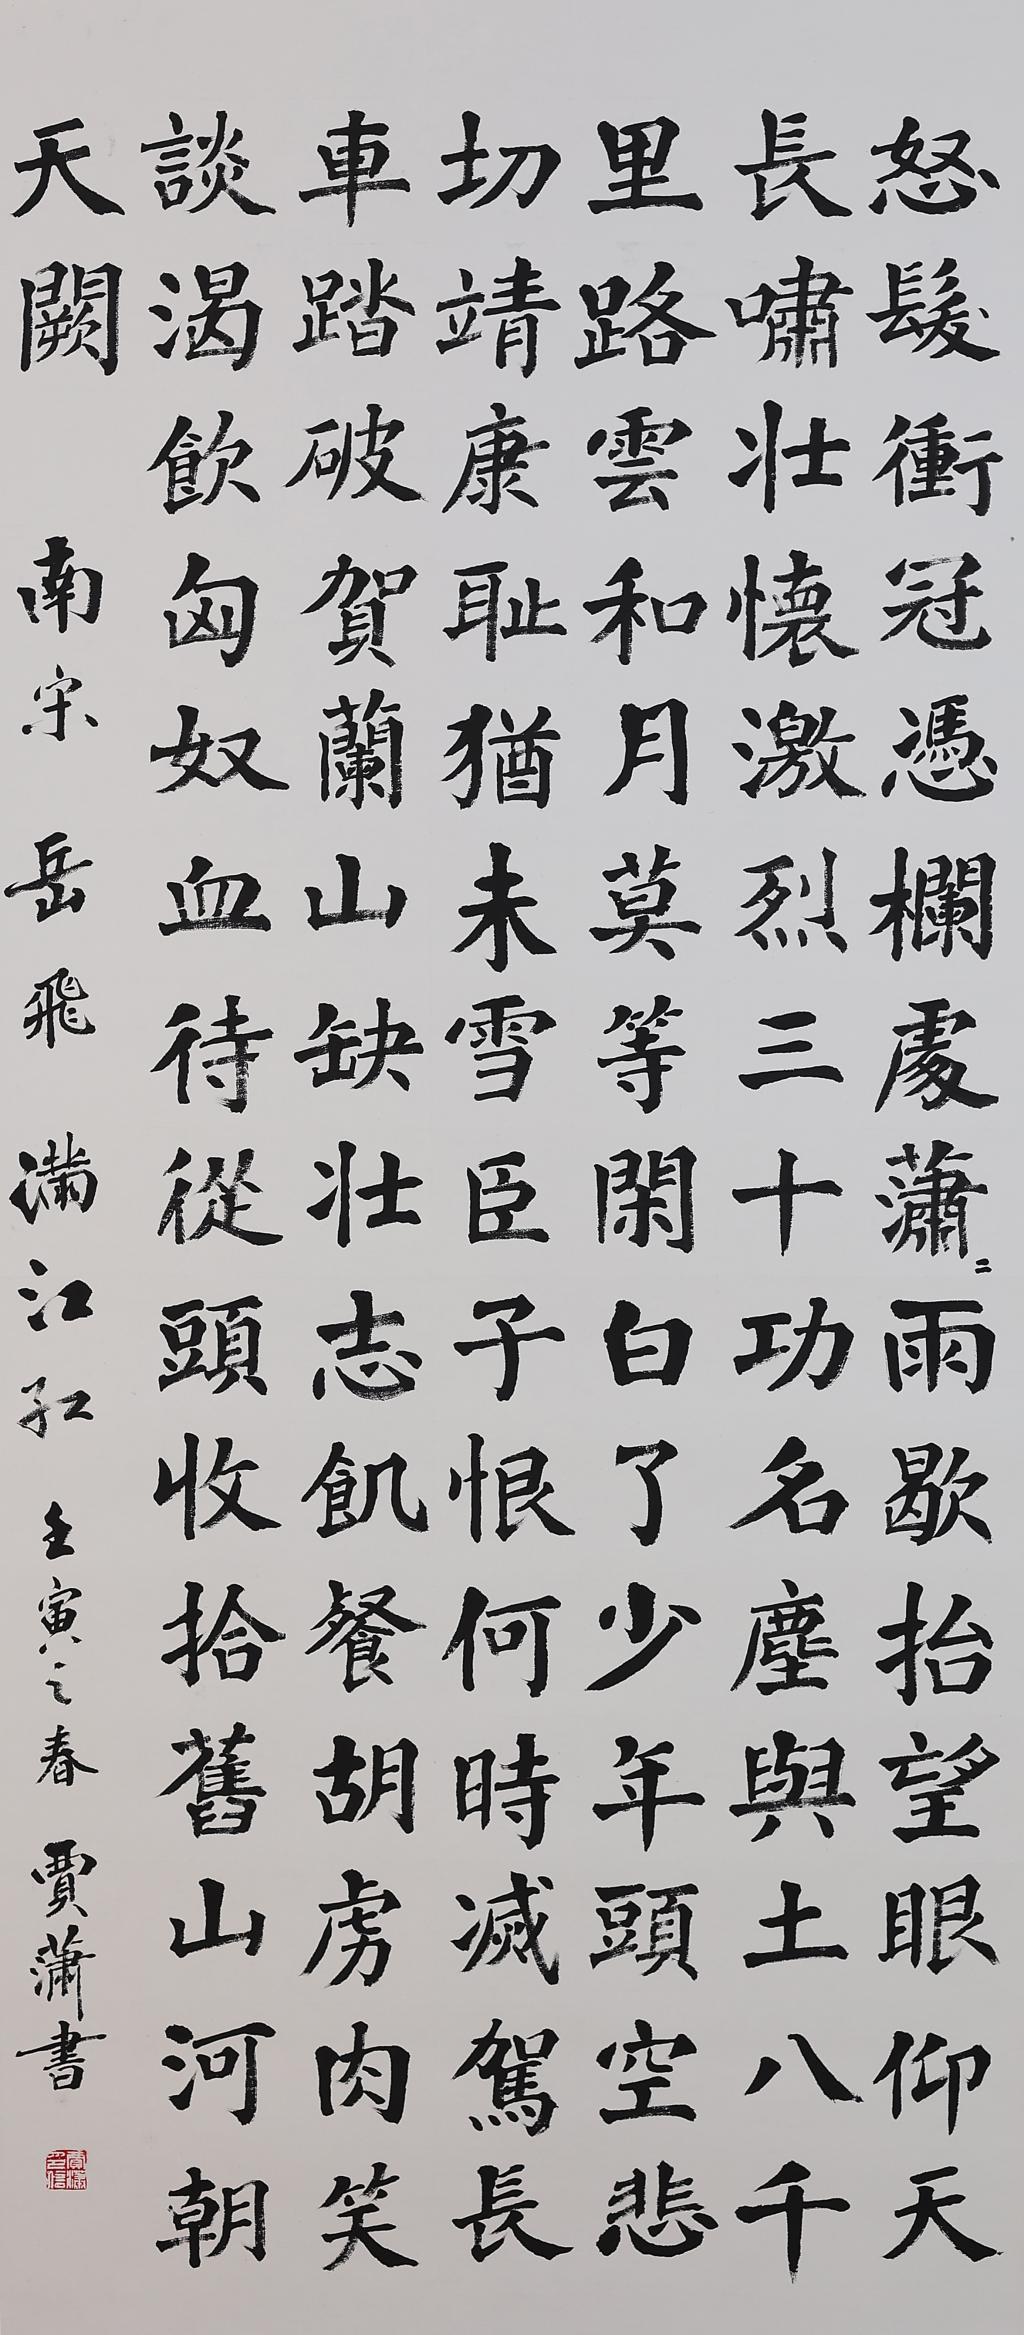 怒髮衝冠憑欄處瀟〻雨歇抬望眼仰天
長嘯壯懷激烈三十功名塵與土八千
里路雲和月莫等閑白了少年頭空悲
切靖康耻猶未雪臣子恨何時滅駕長
車踏破賀蘭山缺壯志飢餐胡虜肉笑
談渴飲匈奴血待從頭收拾舊山河朝
天闕
南宋 岳飛 滿江紅 壬寅之春 賈蕭書